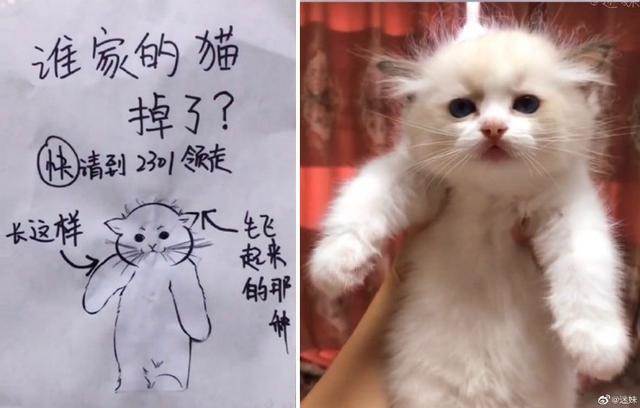 谁家的猫
掉了？
快请到2301领走
长这样
毛飞
起来
的那
种
@迷妹